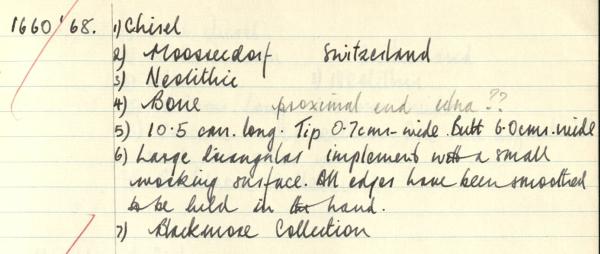 1660/'68. 1) Chisel
2) Moosseedorf Switzerland
3) Neolithic
4) Bone proximal end ulna??
5) 10.5 cms. long. Tip 0.7cms-wide. Butt 6.0cms.wide
6) Large triangular implement with a small
working surface. All edges have been smoothed
to be held in the hand.
7) Blackmore Collection